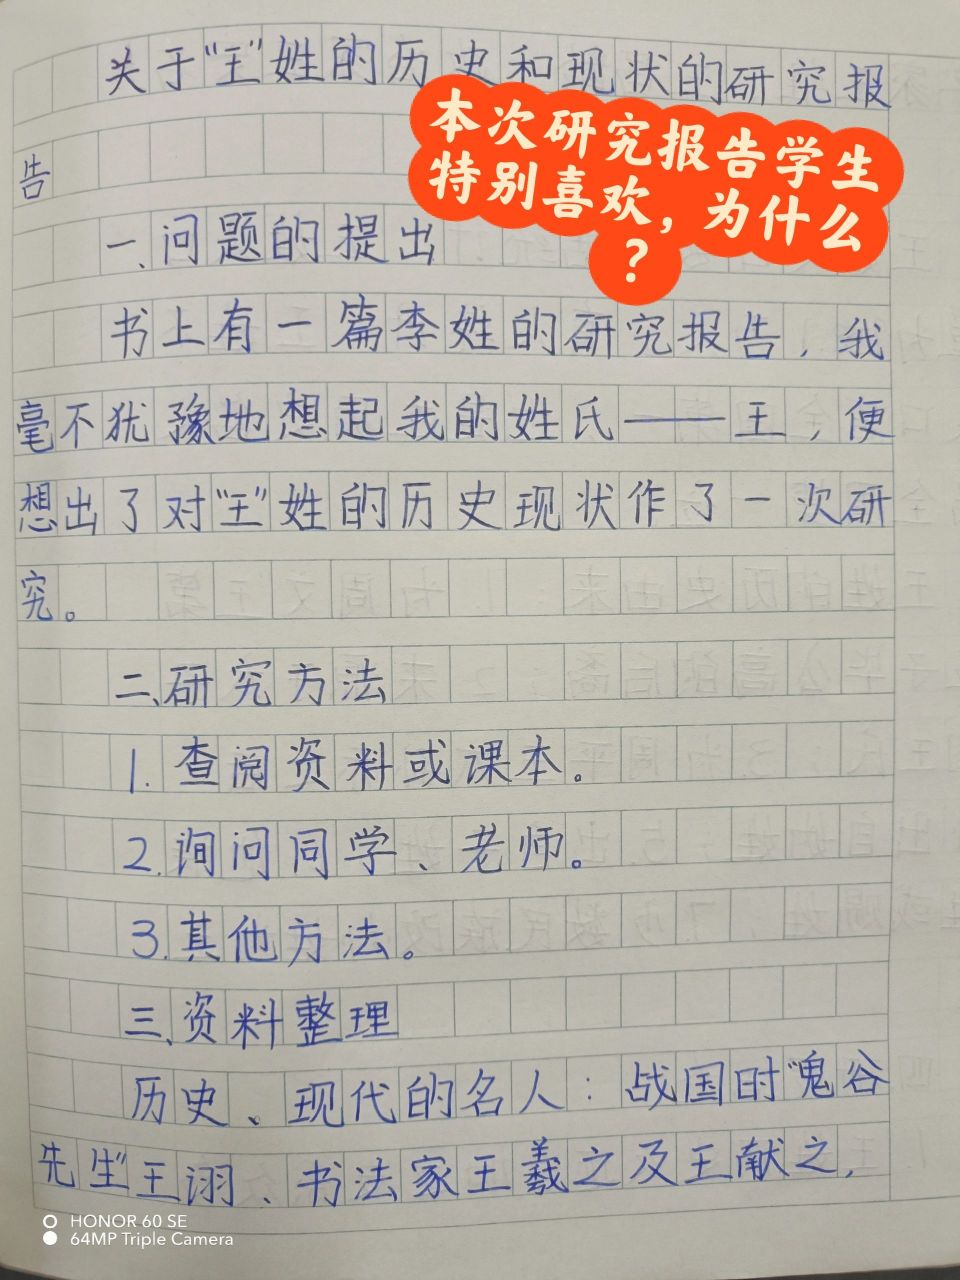 关于“王”姓的历史和现状的研究报
告
本次研究报告学生
特别喜欢，为什么
？
一、问题的提出
书上有一篇李姓的研究报告，我
毫不犹豫地想起我的姓氏——王，便
想出了对“王”姓的历史现状作了一次研
究。
二、研究方法
1.查阅资料或课本。
2.询问同学、老师。
3.其他方法。
三、资料整理
历史、现代的名人：战国时“鬼谷
先生”王诩、书法家王羲之及王献之，
HONOR 60 SE
64MP Triple Camera